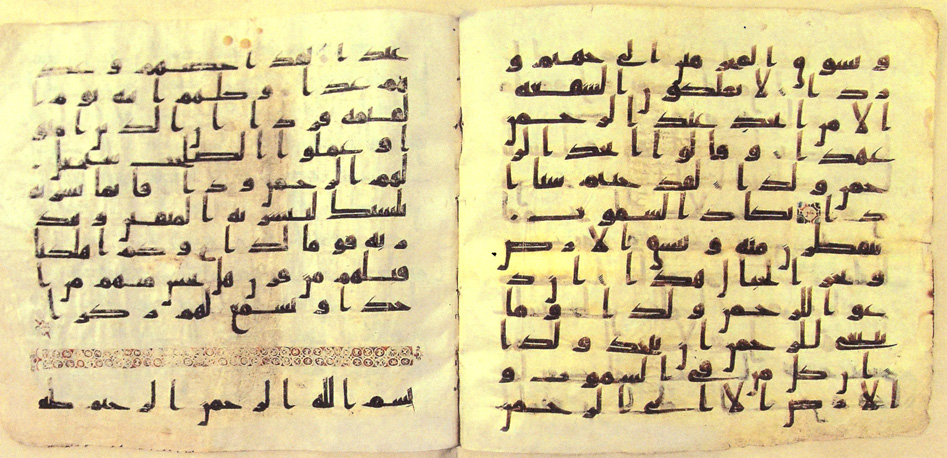 ونسوق المجرمين الى جهنم و
ردا لا يملكون الشفعه
الا من اتخذ عند الرحمن
عهدا وقالوا اتخذ الر
حمن ولدا لقد جئتم شيا ا
دا تكاد السموت
يتفطرن منه وتنشق الارض
وتخر الجبال هدا ان د
عوا للرحمن ولدا وما
ينبغى للرحمن ان يتخذ ولدا
ان كل من فى السموت و
الارض الا اتى الرحمن
عبدا لقد احصيهم وعد
هم عدا وكلهم اتيه يوم ا
لقيمه فردا ان الذين امنو
ا وعملوا الصلحت سيجعل
لهم الرحمن ودا فانما يسرنه
بلسنك لتبشر به المتقين وتنذ
ر به قوما لدا وكم اهلكنا
قبلهم من قرن هل تحس منهم من ا
حد او تسمع لهم ركزا
بسم الله الرحمن الرحيم طه